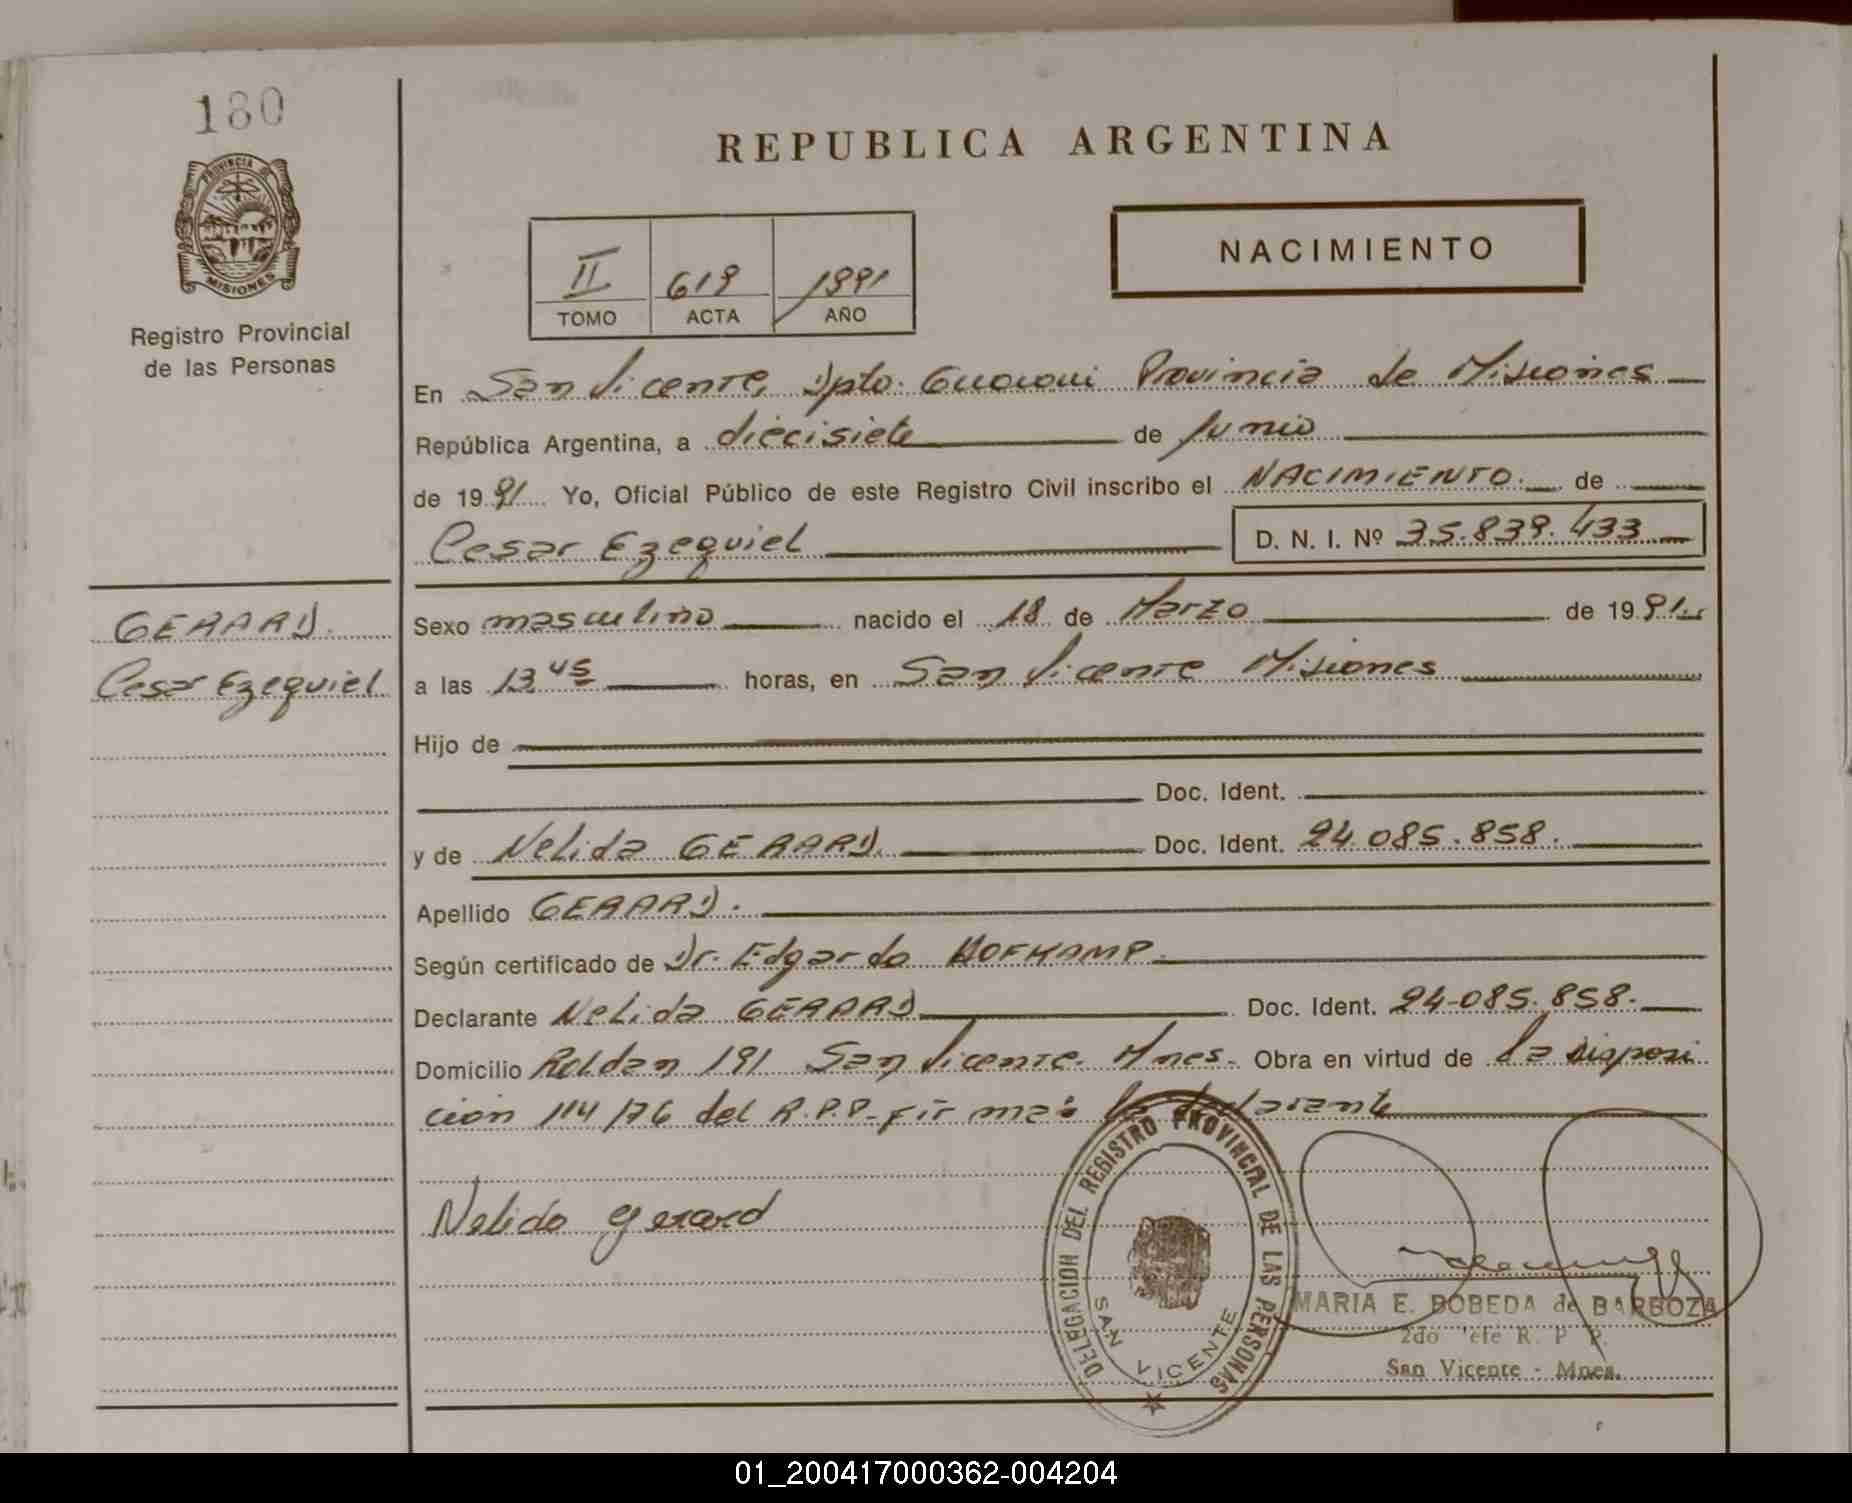 180
PROVINCIA
MISIONES
Registro Provincial
de las Personas
GERARD.
Cesar Ezequiel
REPUBLICA ARGENTINA
NACIMIENTO
II 619 1991
TOMO ACTA AÑO
En San Vicente, Dpto. Guarani Provincia de Misiones
República Argentina, a diecisiete de Junio
de 1991 Yo, Oficial Público de este Registro Civil inscribo el NACIMIENTO. de
Cesar Ezequiel D. N. I. Nº 35.839.433
Sexo masculino nacido el 18 de Marzo de 1991.
a las 13,45 horas, en San Vicente Misiones
Hijo de
Doc. Ident.
y de Nelida GERARD. Doc. Ident. 24.085.858.
Apellido GERARD.
Según certificado de Dr. Edgardo HOFKAMP.
Declarante Nelida GERARD Doc. Ident. 24-085.858.
Domicilio Roldan 191 San Vicente. Mnes. Obra en virtud de la disposi
cion 114/76 del R.P.P. firma: la declarante
Nelida Gerard
DELEGACION DEL REGISTRO PROVINCIAL DE LAS PERSONAS
SAN VICENTE
MARIA E. BOBEDA de BARBOZA
2do Jefe R. P. P.
San Vicente - Mnes.
01_200417000362-004204